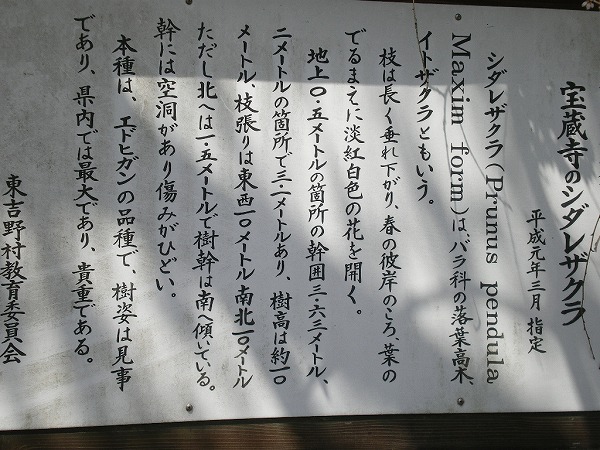 宝蔵寺のシダレザクラ
平成元年三月 指定
シダレザクラ(Prunus pendula
Maxim form)は、バラ科の落葉高木、
イトザクラともいう。
枝は長く垂れ下がり、春の彼岸のころ、葉の
でるまえに淡紅白色の花を開く。
地上〇・五メートルの箇所の幹囲三・六三メートル、
二メートルの箇所で三・一メートルあり、樹高は約一〇
メートル、枝張りは東西一〇メートル南北一〇メートル
ただし北へは一・五メートルで樹幹は南へ傾いている。
幹には空洞があり傷みがひどい。
本種は、エドヒガンの品種で、樹姿は見事
であり、県内では最大であり、貴重である。
東吉野村教育委員会